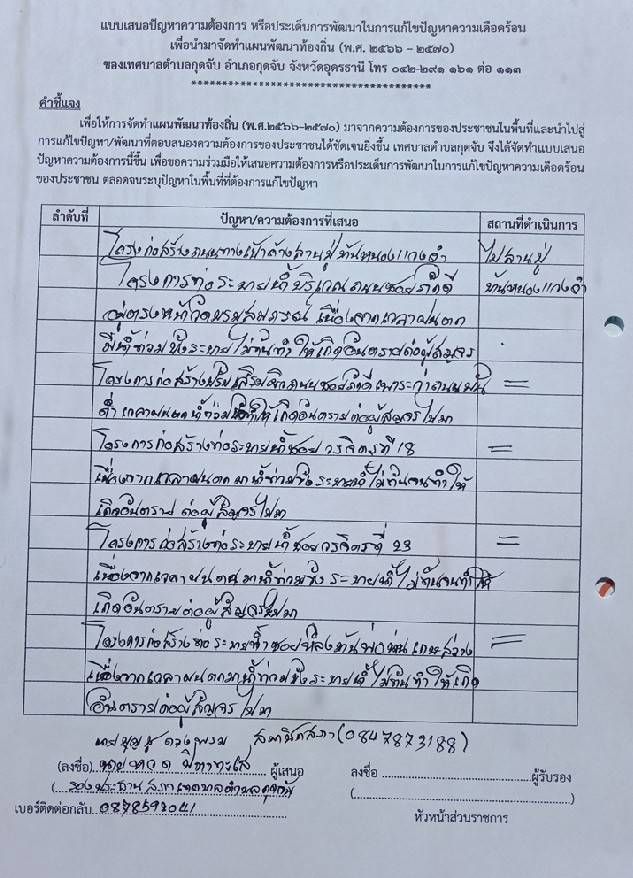 แบบเสนอปัญหาความต้องการ หรือประเด็นการพัฒนาในการแก้ไขปัญหาความเดือดร้อน
เพื่อนำมาจัดทำแผนพัฒนาท้องถิ่น (พ.ศ. ๒๕๖๖ - ๒๕๗๐)
ของเทศบาลตำบลกุดจับ อำเภอกุดจับ จังหวัดอุดรธานี โทร ๐๔๒-๒๙๑ ๑๖๑ ต่อ ๑๑๓
คำชี้แจง
เพื่อให้การจัดทำแผนพัฒนาท้องถิ่น (พ.ศ.๒๕๖๖-๒๕๗๐) มาจากความต้องการของประชาชนในพื้นที่และนำไปสู่
การแก้ไขปัญหา/พัฒนาที่ตอบสนองความต้องการของประชาชนได้ชัดเจนยิ่งขึ้น เทศบาลตำบลกุดจับ จึงได้จัดทำแบบเสนอ
ปัญหาความต้องการนี้ขึ้น เพื่อขอความร่วมมือให้เสนอความต้องการหรือประเด็นการพัฒนาในการแก้ไขปัญหาความเดือดร้อน
ของประชาชน ตลอดจนระบุปัญหาในพื้นที่ที่ต้องการแก้ไขปัญหา
ลำดับที่ ปัญหา/ความต้องการที่เสนอ สถานที่ดำเนินการ
โครงก่อสร้างถนนทางเข้า บ้านหนองแวงฮำ
โครงการท่อระบายน้ำบริเวณถนนซอย บ้านหนองแวงฮำ
อยู่ตรงหน้าวัด เนื่องจากเวลาฝนตก
มีน้ำท่วมขังระบายไม่ทันทำให้เกิดอันตรายต่อผู้สัญจร
โครงการก่อสร้างปรับเสริม ถนนซอย เพราะว่าถนนมัน =
ต่ำเวลาฝนตกน้ำท่วม ให้เกิดอันตรายต่อผู้สัญจรไปมา
โครงการก่อสร้างท่อระบายน้ำซอย วรจิตรที่ 18 =
เนื่องจากเวลาฝนตกมาน้ำท่วมขังระบายน้ำไม่ทันจนทำให้
เกิดอันตราย ต่อผู้สัญจรไปมา
โครงการก่อสร้างท่อระบายน้ำซอยวรจิตรที่ 23 =
เนื่องจากเวลาฝนตกมาน้ำท่วมขัง ระบายน้ำไม่ทันจนทำให้
เกิดอันตรายต่อผู้สัญจรไปมา
โครงการก่อสร้างท่อระบายน้ำซอยหลังบ้านพ่อ =
เนื่องจากเวลาฝนตกมาน้ำท่วมขังระบายน้ำไม่ทันทำให้เกิด
อันตรายต่อผู้สัญจรไปมา
นายบุญชู ดวงพรม สมาชิกสภา (0847873188)
(ลงชื่อ) ผู้เสนอ ลงชื่อ ผู้รับรอง
(รองประธานสภาเทศบาลตำบลกุดจับ ( )
เบอร์ติดต่อกลับ 0878593041 หัวหน้าส่วนราชการ